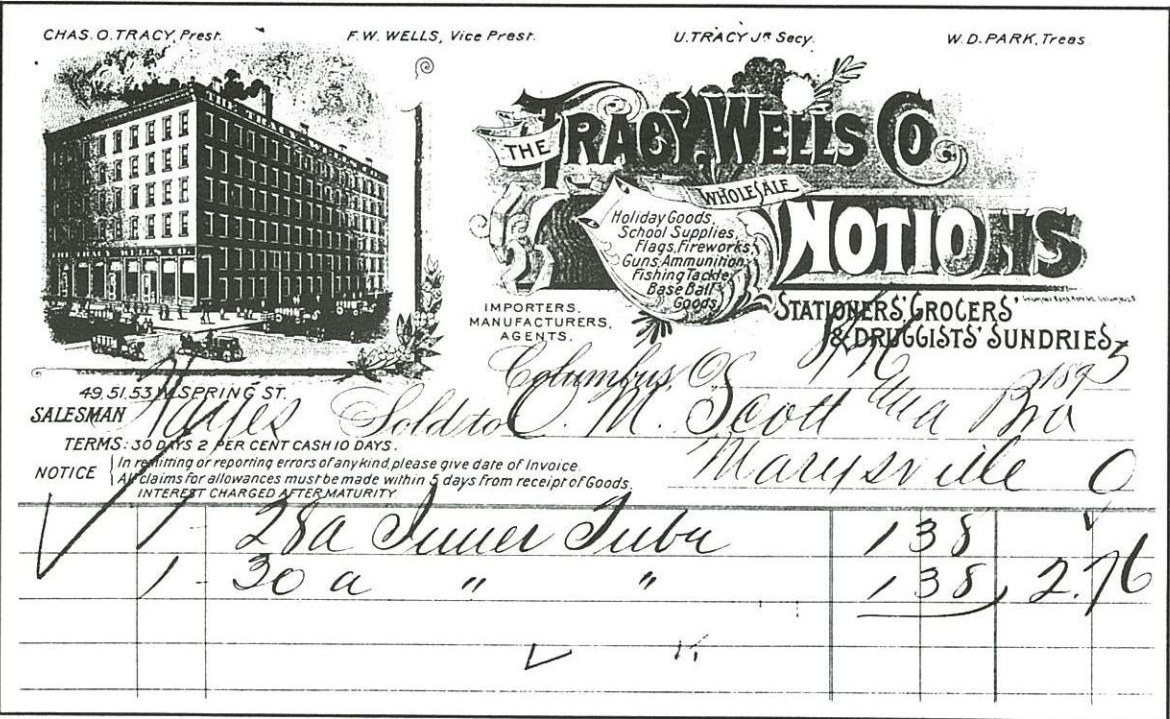 CHAS. O. TRACY, Prest. F. W. WELLS, Vice Prest. U. TRACY JR Secy. W. D. PARK, Treas
THE TRACY, WELLS CO.
WHOLESALE
NOTIONS
Holiday Goods,
School Supplies,
Flags, Fireworks,
Guns, Ammunition,
Fishing Tackle,
Base Ball
Goods
IMPORTERS,
MANUFACTURERS,
AGENTS.
STATIONERS', GROCERS'
& DRUGGISTS' SUNDRIES.
49, 51, 53 W. SPRING ST.
Columbus, O. 1895
SALESMAN Hayes Sold to O. M. Scott Bro
TERMS: 30 DAYS 2 PER CENT CASH 10 DAYS.
Marysville O
NOTICE In remitting or reporting errors of any kind, please give date of Invoice.
All claims for allowances must be made within 5 days from receipt of Goods.
INTEREST CHARGED AFTER MATURITY
1 - 28a Inner Tube 1 38
1 - 30 a " " 1 38 2.76